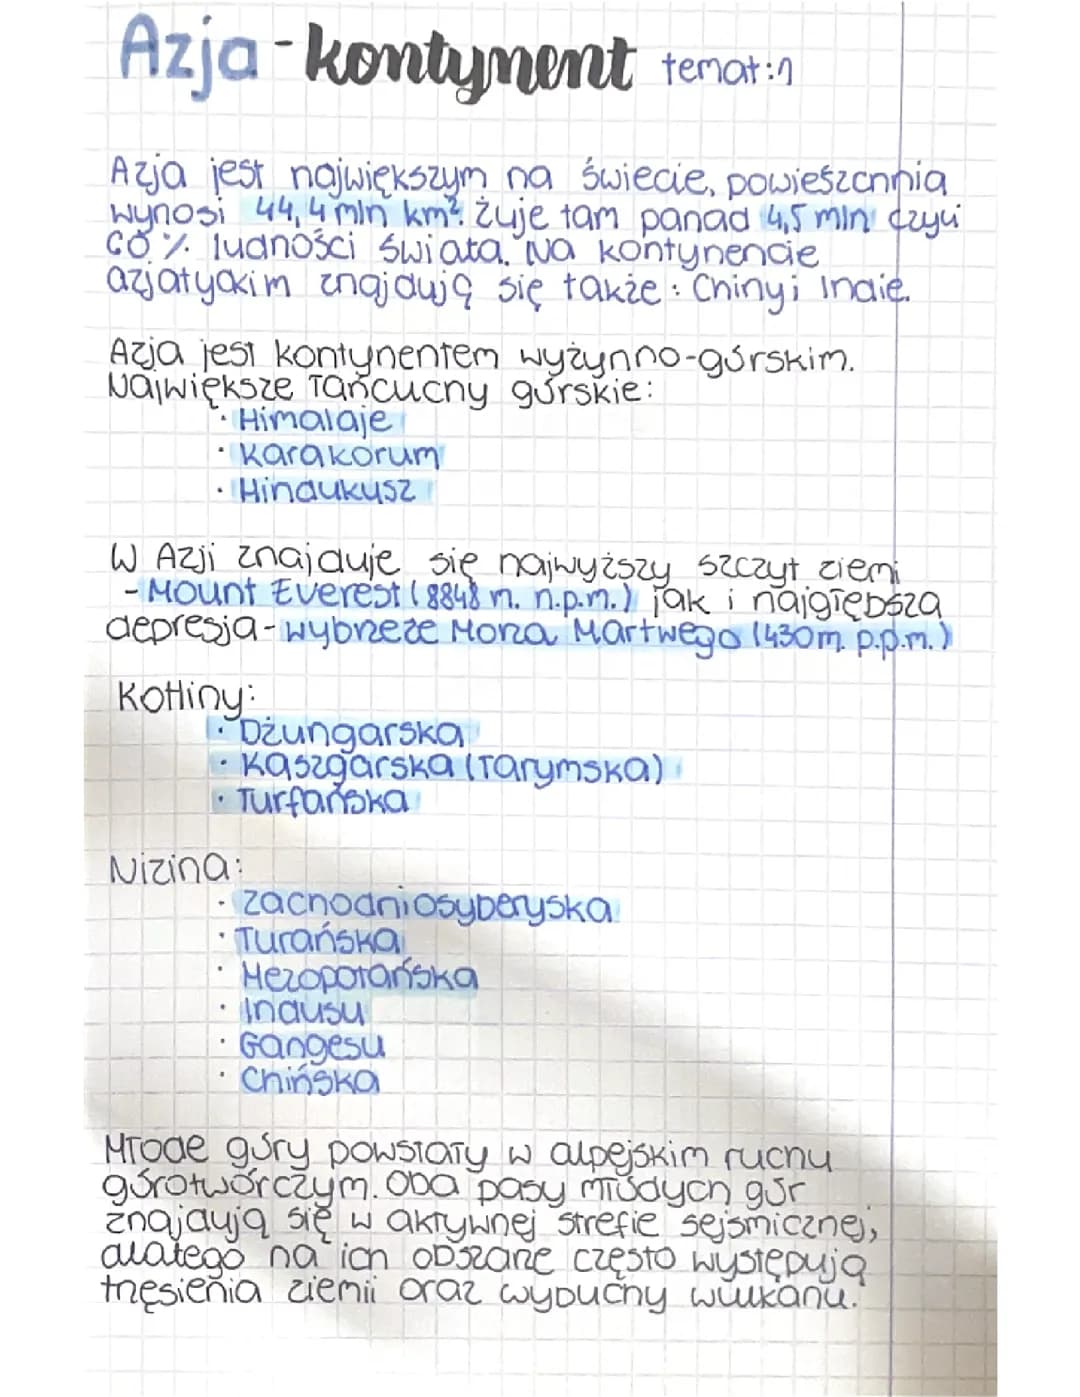 Azja - kontynent temat:1
Azja jest największym na świecie, powieszchnia
wynosi 44,4 mln km². żyje tam panad 4,5 mln czyli
60 % ludności świata. Na kontynencie
azjatyckim znajdują się także : Chiny i Indie.
Azja jest kontynentem wyżynno-górskim.
Największe łańcuchy górskie:
· Himalaje
· Karakorum
· Hindukusz
W Azji znajduje się najwyższy szczyt ziemi
- Mount Everest (8848 m. n.p.m.) jak i najgłębsza
depresja - wybrzeże Morza Martwego (430m. p.p.m.)
Kotliny:
· Dżungarska
· Kaszgarska (Tarymska)
· Turfańska
Nizina:
· zachodniosyberyska
· Turańska
· Mezopotańska
· Indusu
· Gangesu
· Chińska
Młode góry powstały w alpejskim ruchu
górotwórczym. Oba pasy młodych gór
znajdują się w aktywnej strefie sejsmicznej,
dlatego na ich obszarze często występują
trzęsienia ziemii oraz wybuchy wulkanu.